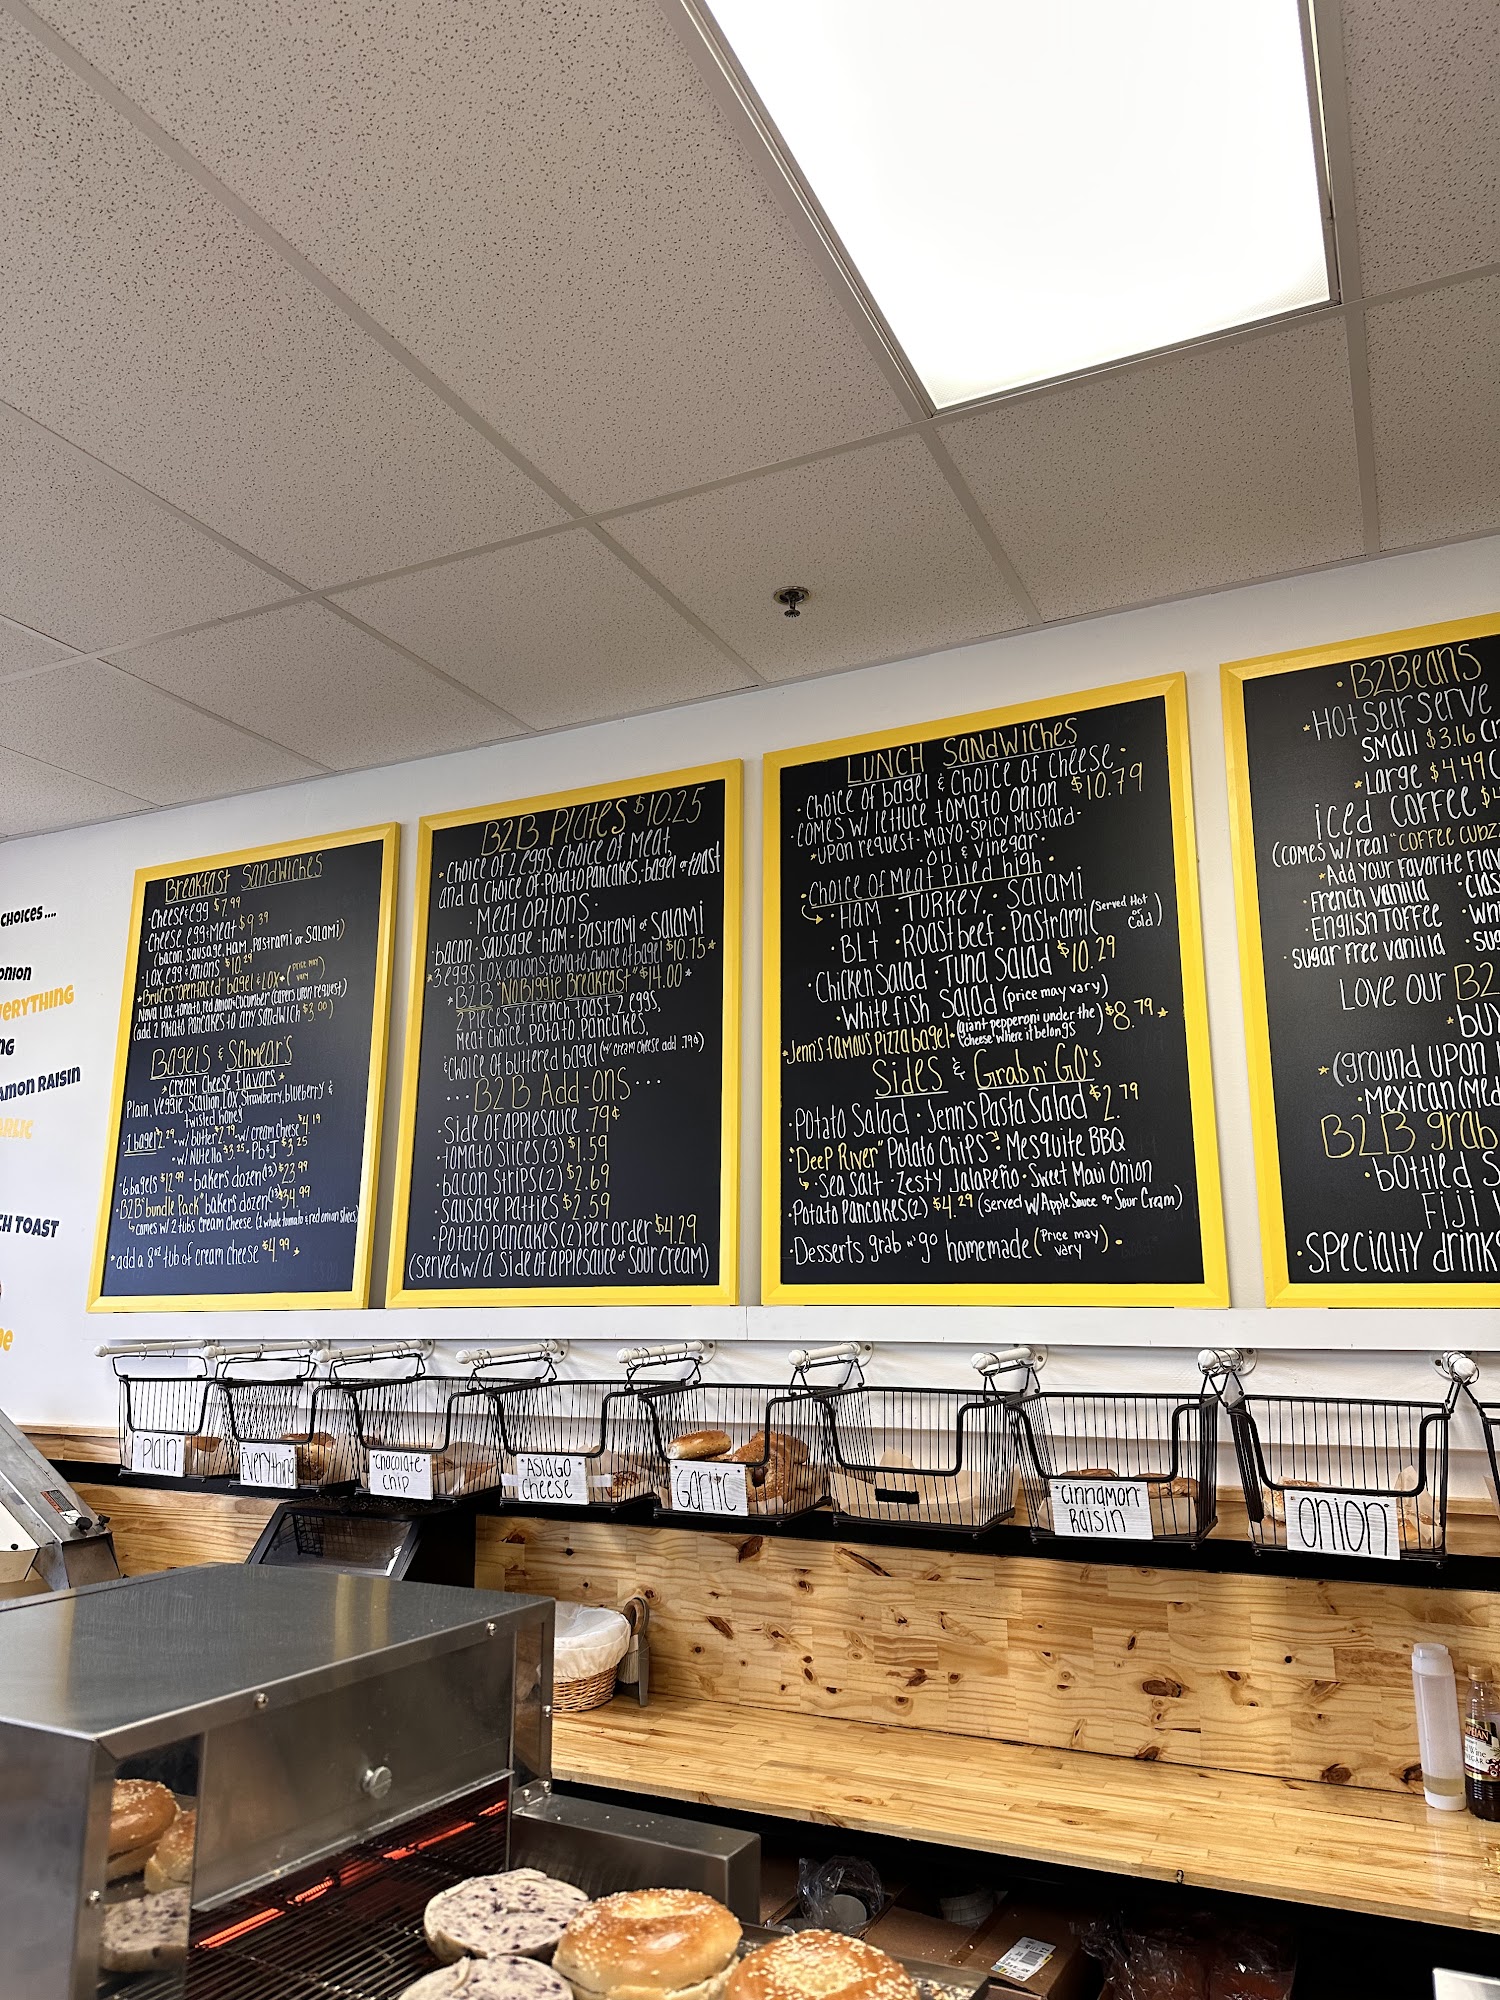 CHOICES ....
ONION
EVERYTHING
AMON RAISIN
CH TOAST
Breakfast Sandwiches
· Cheese & egg $7.99
· Cheese, egg & Meat $9.39
(bacon, Sausage, Ham, Pastrami or Salami)
· Lox, egg & Onions $10.29
* Bruce's open faced bagel & Lox * (Price may vary)
Nova Lox, tomato, red onion & Cucumber (capers upon request)
(add 2 Potato Pancakes to any Sandwich $3.00)
Bagels & Schmear's
* Cream Cheese flavors *
Plain, Veggie, Scallion, Lox, Strawberry, blueberry &
twisted honey
· 1 bagel $2.29 · w/ butter $2.79 · w/ cream cheese $4.19
· w/ Nutella $3.25 · Pb & J $3.25
· 6 bagels $12.99 · baker's dozen (13) $23.99
· B2B "bundle Pack" baker's dozen (13) $34.99
comes w/ 2 tubs Cream Cheese (1 whole tomato & red onion slices)
* add a 8oz tub of cream cheese $4.99 *
B2B Plates $10.25
* Choice of 2 eggs, Choice of Meat,
and a choice of Potato Pancakes, bagel or toast
Meat options ·
bacon · Sausage · ham · Pastrami or Salami
* 3 eggs, Lox, onions, tomato, Choice of bagel $10.75 *
* B2B "No Biggie Breakfast" $14.00 *
2 pieces of french toast, 2 eggs,
Meat choice, Potato, Pancakes,
& Choice of buttered bagel (w/ cream cheese add .79¢)
... B2B Add-ons ...
· Side of applesauce .79¢
· tomato Slices (3) $1.59
· bacon Strips (2) $2.69
· Sausage Patties $2.59
· Potato Pancakes (2) Per order $4.29
(Served w/ a Side of applesauce or Sour Cream)
LUNCH Sandwiches
· Choice of bagel & Choice of Cheese ·
· Comes w/ lettuce tomato onion $10.79
* Upon request · Mayo · Spicy Mustard ·
Oil & Vinegar ·
· Choice of Meat Piled high ·
· Ham · Turkey · Salami
· BLt · Roast beef · Pastrami (Served Hot or Cold)
· Chicken Salad · Tuna Salad $10.29
· White fish Salad (price may vary)
* Jenn's famous Pizza bagel * (Giant pepperoni under the cheese "where it belongs") $8.79 *
Sides & Grab n' Go's
· Potato Salad · Jenn's Pasta Salad $2.79
· "Deep River" Potato Chips · Mesquite BBQ
· Sea Salt · Zesty Jalapeño · Sweet Maui Onion
· Potato Pancakes (2) $4.29 (Served w/ Apple Sauce or Sour Cream)
· Desserts grab n' go homemade (Price may vary) ·
· B2Beans
* Hot Self Serve
Small $3.16
* Large $4.49
iced Coffee
(comes w/ real "Coffee Cubz
* Add your Favorite Flav
· French Vanilla
· English Toffee
· Sugar Free Vanilla
Love our B2
* Buy
* (ground upon
· Mexican (Med
B2B grab
· bottled S
FIJI
· Specialty drinks
Plain
Everything
* Chocolate *
chip
* ASIAGO
Cheese *
Garlic
Cinnamon
Raisin
Onion